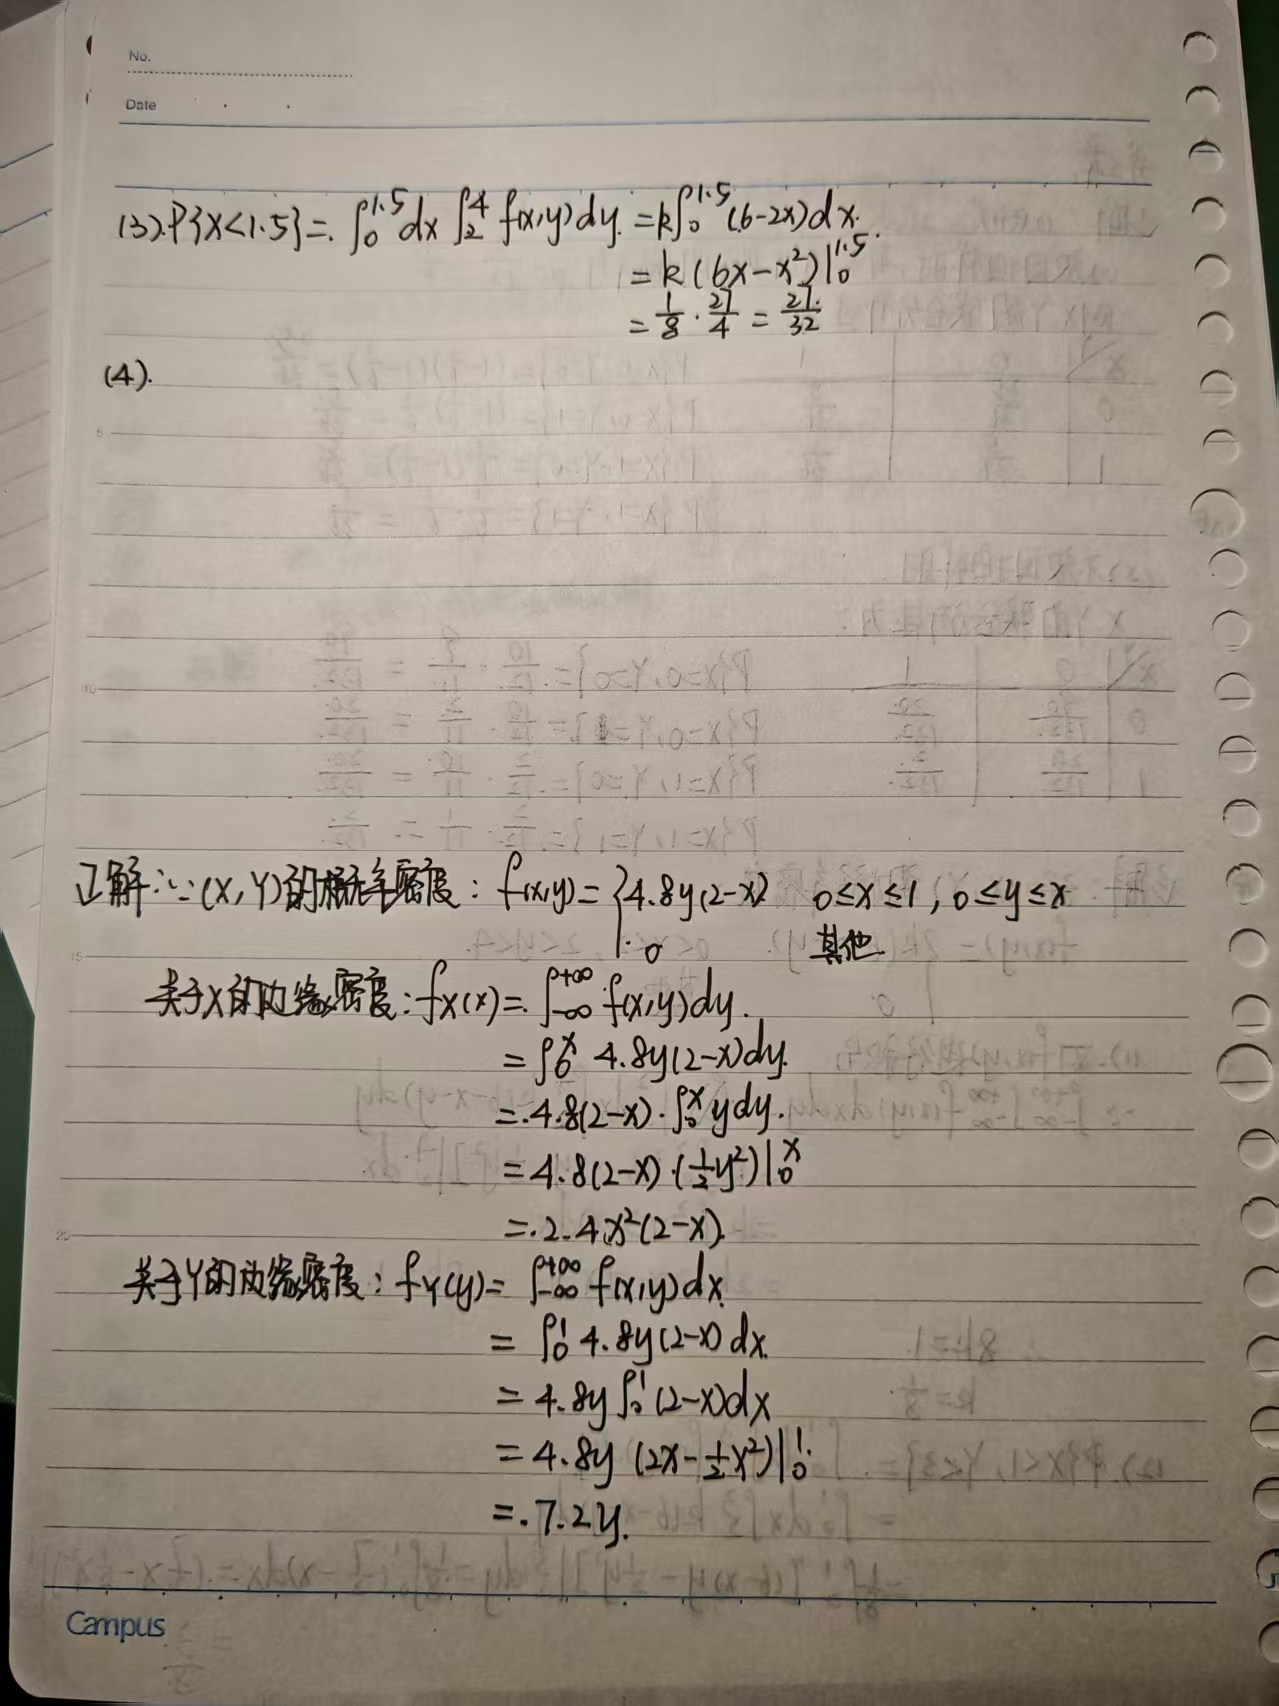 No.
Date
(3).P{X<1.5}=.∫₀^1.5 dx ∫₂^4 f(x,y)dy.=k∫₀^1.5 (6-2x)dx.
=k(6x-x²)|₀^1.5
=1/8·27/4=27/32
(4).
5
10
解:∵(X,Y)的概率密度:f(x,y)={4.8y(2-x) 0≤x≤1,0≤y≤x
0 其他
15
关于X的边缘密度:fX(x)=.∫₋∞^+∞ f(x,y)dy.
=∫₀^x 4.8y(2-x)dy.
=.4.8(2-x)·∫₀^x ydy.
=4.8(2-x)·(1/2y²)|₀^x
=.2.4x²(2-x).
20
关于Y的边缘密度:fY(y)=∫₋∞^+∞ f(x,y)dx.
=∫₀^1 4.8y(2-x)dx.
=4.8y∫₀^1 (2-x)dx
=4.8y(2x-1/2x²)|₀^1.
=.7.2y.
Campus